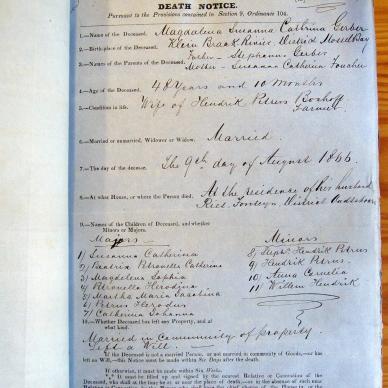 DEATH NOTICE.
Pursuant to the Provisions contained in Section 9, Ordinance 104.
1.—Name of the Deceased, Magdalena Susanna Cathrina Gerber
2.—Birth-place of the Deceased, Klein Braak Rivier District Mossel Bay
3.—Names of the Parents of the Deceased, Father – Stephanus Gerber
Mother – Susanna Catherina Fouchee
4.—Age of the Deceased, 48 Years and 10 Months
5.—Condition in life, Wife of Hendrik Petrus Boshoff
Farmer
6.—Married or unmarried, Widower or Widow, Married
7.—The day of the decease, The 9th day of August 1866.
8.—At what House, or where the Person died, At the residence of his husband
Riet Fonteyn District Oudtshoorn
9.—Names of the Children of Deceased, and whether
Minors or Majors.
Majors
Minors
1) Susanna Catharina
2) Beatrix Petronella Catherina
3) Magdalena Sophia
4) Petronella Herodina
5) Martha Maria Jacobina
6) Petrus Herodus
7) Catherina Johanna
8) Steph: Hendrik Petrus
9) Hendrik Petrus
10) Anna Cornelia
11) Willem Hendrik
10.—Whether Deceased has left any Property, and of
what kind.
Married in Community of Property.
Left a Will.
If the Deceased is not a married Person, or not married in community of Goods,—or has
left no Will,—this Notice must be made within Six Days after the death.
If otherwise, it must be made within Six Weeks.
It must be filled up and signed by the nearest Relative or Connection of the
Deceased, who shall at the time be at or near the place of death,—or in the absence of such near